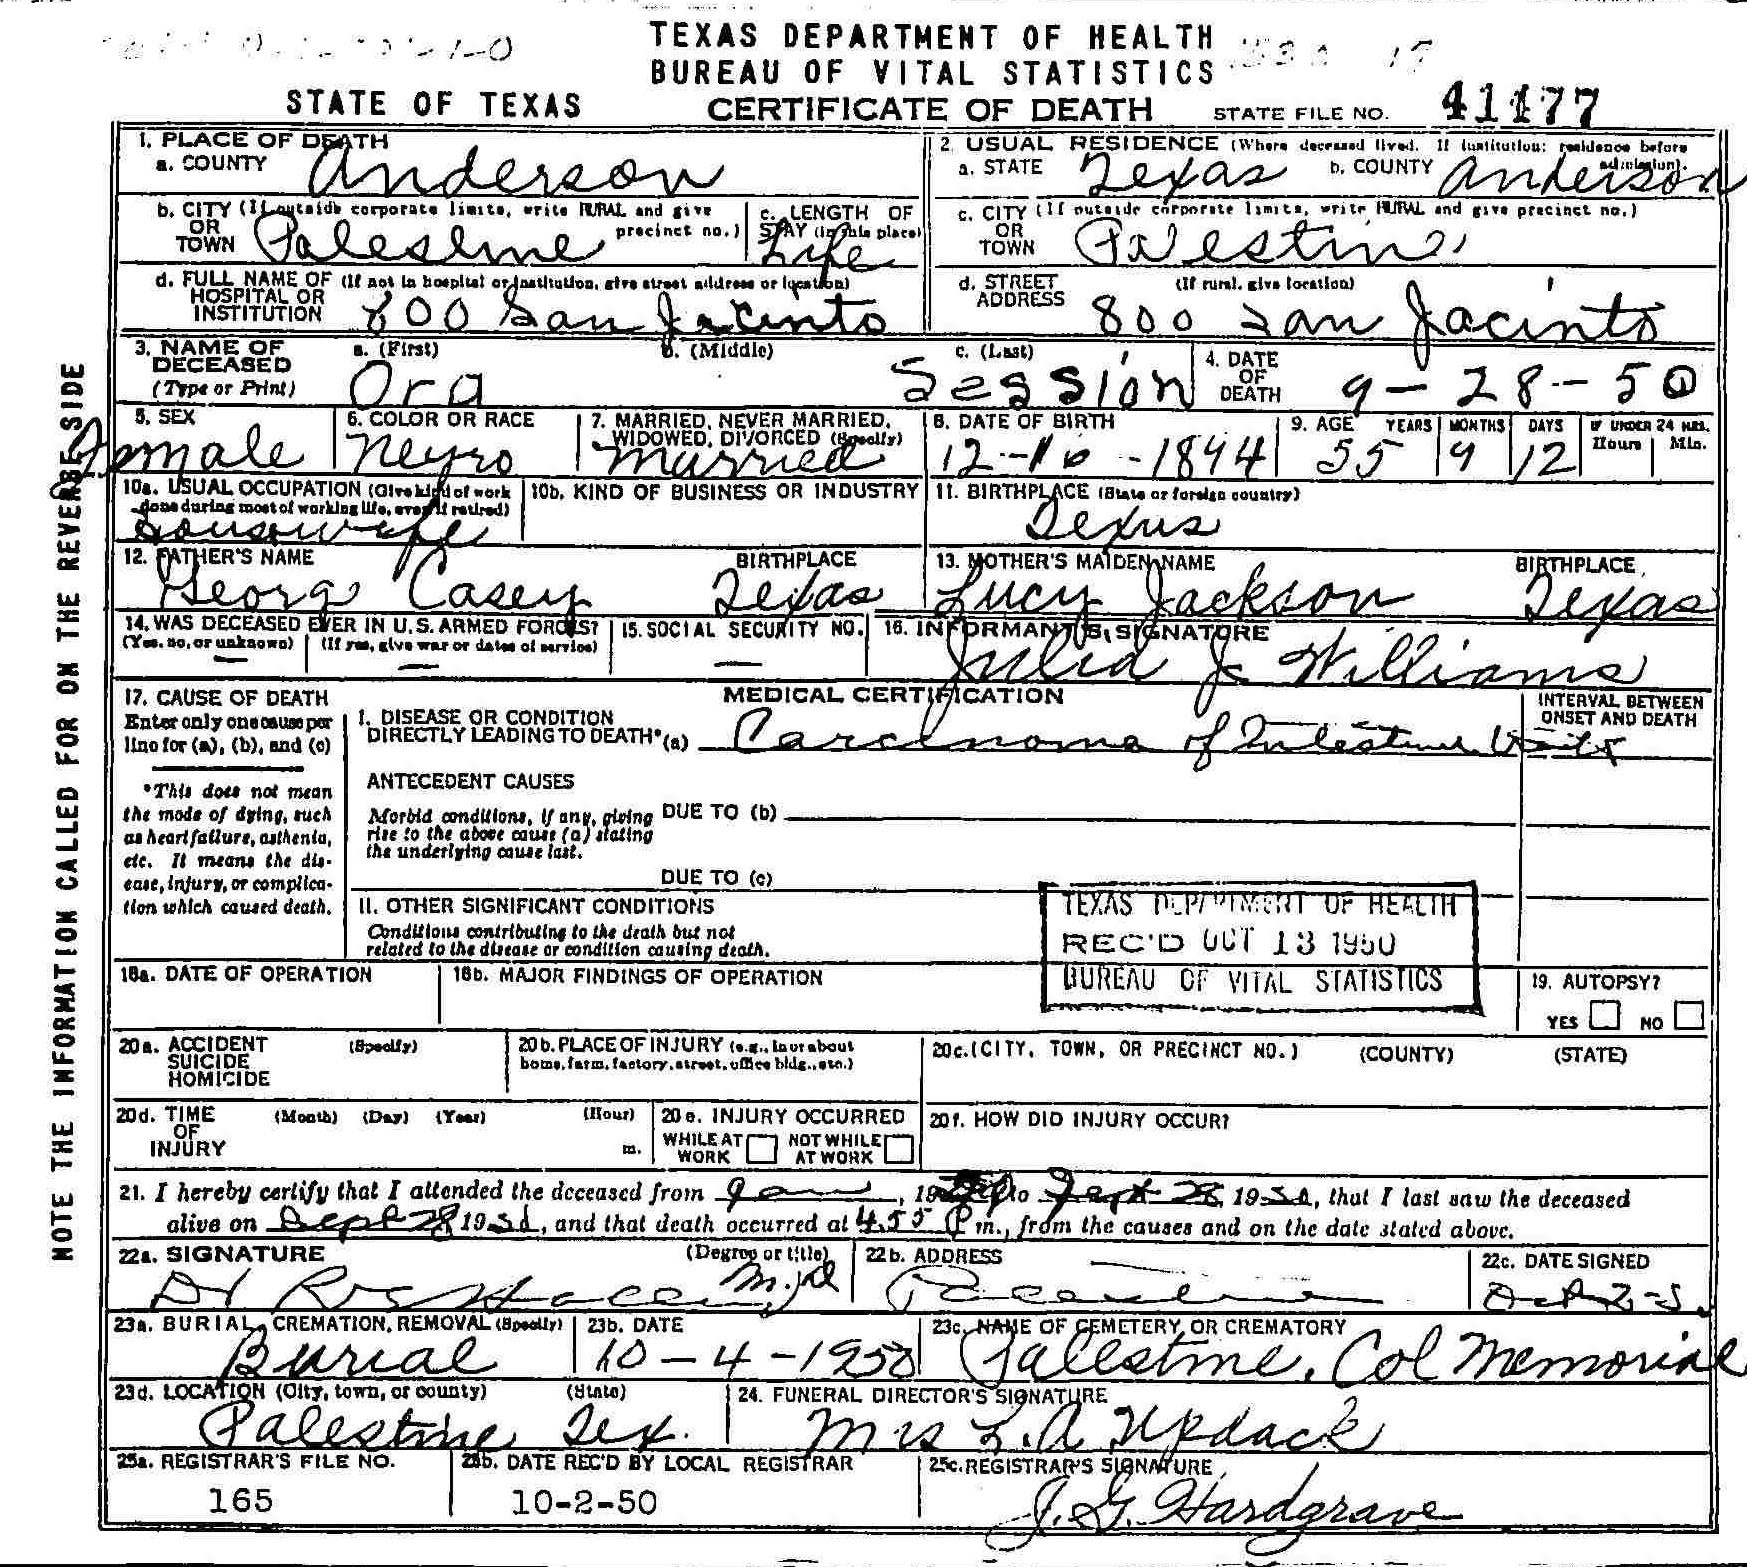 TEXAS DEPARTMENT OF HEALTH
BUREAU OF VITAL STATISTICS
STATE OF TEXAS CERTIFICATE OF DEATH STATE FILE NO. 41177
NOTE THE INFORMATION CALLED FOR ON THE REVERSE SIDE
1. PLACE OF DEATH
a. COUNTY Anderson
2. USUAL RESIDENCE (Where deceased lived. If institution: residence before admission).
a. STATE Texas b. COUNTY Anderson
b. CITY (If outside corporate limits, write RURAL and give precinct no.) OR TOWN Palestine
c. LENGTH OF STAY (in this place) Life
c. CITY (If outside corporate limits, write RURAL and give precinct no.) OR TOWN Palestin
d. FULL NAME OF (If not in hospital or institution, give street address or location) HOSPITAL OR INSTITUTION 800 San Jacinto
d. STREET ADDRESS (If rural, give location) 800 San Jacinto
3. NAME OF DECEASED (Type or Print) a. (First) Ora b. (Middle) c. (Last) Session
4. DATE OF DEATH 9-28-50
5. SEX Female
6. COLOR OR RACE Negro
7. MARRIED, NEVER MARRIED, WIDOWED, DIVORCED (Specify) Married
8. DATE OF BIRTH 12-16-1894
9. AGE YEARS 55 MONTHS 9 DAYS 12 IF UNDER 24 HRS. Hours Min.
10a. USUAL OCCUPATION (Give kind of work done during most of working life, even if retired) Housewife
10b. KIND OF BUSINESS OR INDUSTRY
11. BIRTHPLACE (State or foreign country) Texas
12. FATHER'S NAME Georg Casey BIRTHPLACE Texas
13. MOTHER'S MAIDEN NAME Lucy Jackson BIRTHPLACE Texas
14. WAS DECEASED EVER IN U.S. ARMED FORCES? (Yes, no, or unknown) — (If yes, give war or dates of service) —
15. SOCIAL SECURITY NO. —
16. INFORMANT'S SIGNATURE Julia J Williams
17. CAUSE OF DEATH
Enter only one cause per line for (a), (b), and (c)
*This does not mean the mode of dying, such as heart failure, asthenia, etc. It means the disease, injury, or complication which caused death.
MEDICAL CERTIFICATION
INTERVAL BETWEEN ONSET AND DEATH
I. DISEASE OR CONDITION DIRECTLY LEADING TO DEATH* (a) Carcinoma of Intestine
ANTECEDENT CAUSES
Morbid conditions, if any, giving rise to the above cause (a) stating the underlying cause last.
DUE TO (b)
DUE TO (c)
II. OTHER SIGNIFICANT CONDITIONS
Conditions contributing to the death but not related to the disease or condition causing death.
TEXAS DEPARTMENT OF HEALTH
REC'D OCT 13 1950
BUREAU OF VITAL STATISTICS
18a. DATE OF OPERATION
18b. MAJOR FINDINGS OF OPERATION
19. AUTOPSY? YES NO
20a. ACCIDENT SUICIDE HOMICIDE (Specify)
20b. PLACE OF INJURY (e.g., in or about home, farm, factory, street, office bldg., etc.)
20c. (CITY, TOWN, OR PRECINCT NO.) (COUNTY) (STATE)
20d. TIME OF INJURY (Month) (Day) (Year) (Hour) m.
20e. INJURY OCCURRED WHILE AT WORK NOT WHILE AT WORK
20f. HOW DID INJURY OCCUR?
21. I hereby certify that I attended the deceased from Jan, 1950 to Sept 28 1950, that I last saw the deceased
alive on Sept 28 1950, and that death occurred at 4:55 P m., from the causes and on the date stated above.
22a. SIGNATURE (Degree or title) M.D.
22b. ADDRESS Palestine
22c. DATE SIGNED Oct-2-5
23a. BURIAL, CREMATION, REMOVAL (Specify) Burial
23b. DATE 10-4-1950
23c. NAME OF CEMETERY OR CREMATORY Palestine, Col Memorial
23d. LOCATION (City, town, or county) (State) Palestine Tex.
24. FUNERAL DIRECTOR'S SIGNATURE Mrs L.A Updack
25a. REGISTRAR'S FILE NO. 165
25b. DATE REC'D BY LOCAL REGISTRAR 10-2-50
25c. REGISTRAR'S SIGNATURE J.G. Hardgrave